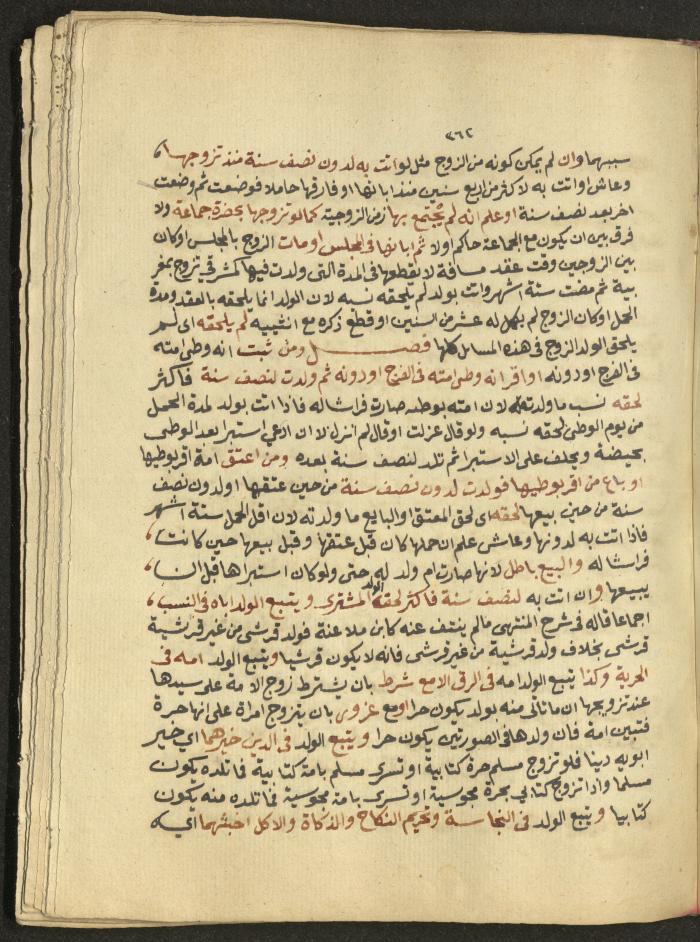 ٢٦٢
سببهما وان لم يمكن كونه من الزوج مثل لو اتت به لدون نصف سنة منذ تزوجها
وعاش او اتت به لاكثر من اربع سنين منذ ابانها او فارقها حاملا فوضعت ثم وضعت
اخر بعد نصف سنة او علم انه لم يجتمع بها زمن الزوجية كما لو تزوجها بحضرة جماعة ولا
فرق بين ان يكون مع الجماعة حاكم اولا ثم ابانها في المجلس او مات الزوج بالمجلس او كان
بين الزوجين وقت عقد مسافة لا يقطعها في المدة التى ولدت فيها كمشرقي تزوج بمغر
بية ثم مضت ستة اشهر واتت بولد لم يلحقه نسبه لان الولد انما يلحقه بالعقد ومدة
الحمل او كان الزوج لم يكمل له عشر من السنين او قطع ذكره مع انثييه لم يلحقه اى لم
يلحق الولد الزوج فى هذه المسائل كلها فصل ومن ثبت انه وطى امته
فى الفرج او دونه او اقر انه وطى امته فى الفرج او دونه ثم ولدت لنصف سنة فاكثر
لحقه نسب ما ولدته لان امته بوطئه صارت فراشا له فاذا اتت بولد لمدة الحمل
من يوم الوطئ لحقه نسبه ولو قال عزلت او قال لم انزل لا ان ادعي استبرا بعد الوطى
بحيضة ويحلف على الاستبرا ثم تلد لنصف سنة بعده ومن اعتق امة اقر بوطيها
او باع من اقر بوطيها فولدت لدون نصف سنة من حين عتقها او لدون نصف
سنة من حين بيعها لحقه اى لحق المعتق او البايع ما ولدته لان اقل الحمل ستة اشهر
فاذا اتت به لدونها وعاش علم ان حملها كان قبل عتقها وقبل بيعها حين كانت
فراشا له والبيع باطل لانها صارت ام ولد له حتى ولو كان استبراها قبل ان
يبيعها وان اتت به لنصف سنة فاكثر لحقه الولد المشترى ويتبع الولد اباه فى النسب
اجماعا قاله فى شرح المنتهى ما لم ينتف عنه كابن ملاعنة فولد قرشى من غير قرشية
قرشى بخلاف ولد قرشية من غير قرشى فانه لا يكون قرشيا ويتبع الولد امه فى
الحرية وكذا يتبع الولد امه فى الرق الا مع شرط بان يشترط زوج الامة على سيدها
عند تزويجها ان ما تاتى منه بولد يكون حرا او مع غرور بان يتزوج امراة على انها حرة
فتبين امة فان ولدها فى الصورتين يكون حرا ويتبع الولد فى الدين خيرهما اي خير
ابويه دينا فلو تزوج مسلم حرة كتابية او تسرى مسلم بامة كتابية فما تلده يكون
مسلما واذا تزوج كتابي بحرة مجوسية او تسرى بامة مجوسية فما تلده منه يكون
كتابيا ويتبع الولد فى النجاسة وتحريم النكاح والذكاة والاكل اخبثهما اي